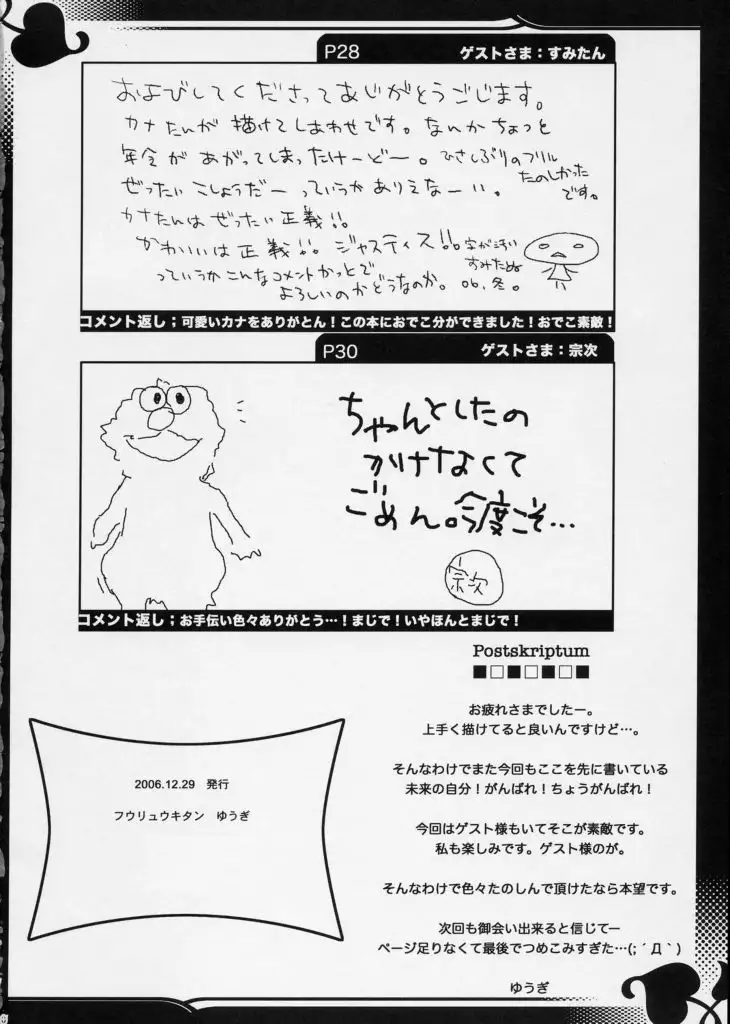 P28
ゲストさま：すみたん
およびしてくださってあじがとうごじます。
カナたんが描けてしあわせです。なんかちょっと
年令があがってしまったけーどー。ひさしぶりのフリル
たのしかった
です。
ぜったいこしょうだーっていうかありえなーい。
カナたんはぜったい正義!!
かわいいは正義!! ジャスティス!!
字が汚い
すみたぬ
っていうかこんなコメントかっとで
よろしいのかどうなのか。 06.冬。
コメント返し；可愛いカナをありがとん！この本におでこ分ができました！おでこ素敵！
P30
ゲストさま：宗次
ちゃんとしたの
かけなくて
ごめん。今度こそ…
宗次
コメント返し；お手伝い色々ありがとう…！まじで！いやほんとまじで！
Postskriptum
お疲れさまでしたー。
上手く描けてると良いんですけど…。
そんなわけでまた今回もここを先に書いている
未来の自分！がんばれ！ちょうがんばれ！
今回はゲスト様もいてそこが素敵です。
私も楽しみです。ゲスト様のが。
そんなわけで色々たのしんで頂けたなら本望です。
次回も御会い出来ると信じてー
ページ足りなくて最後でつめこみすぎた…(;´Д｀)
ゆうぎ
2006.12.29　発行
フウリュウキタン　ゆうぎ